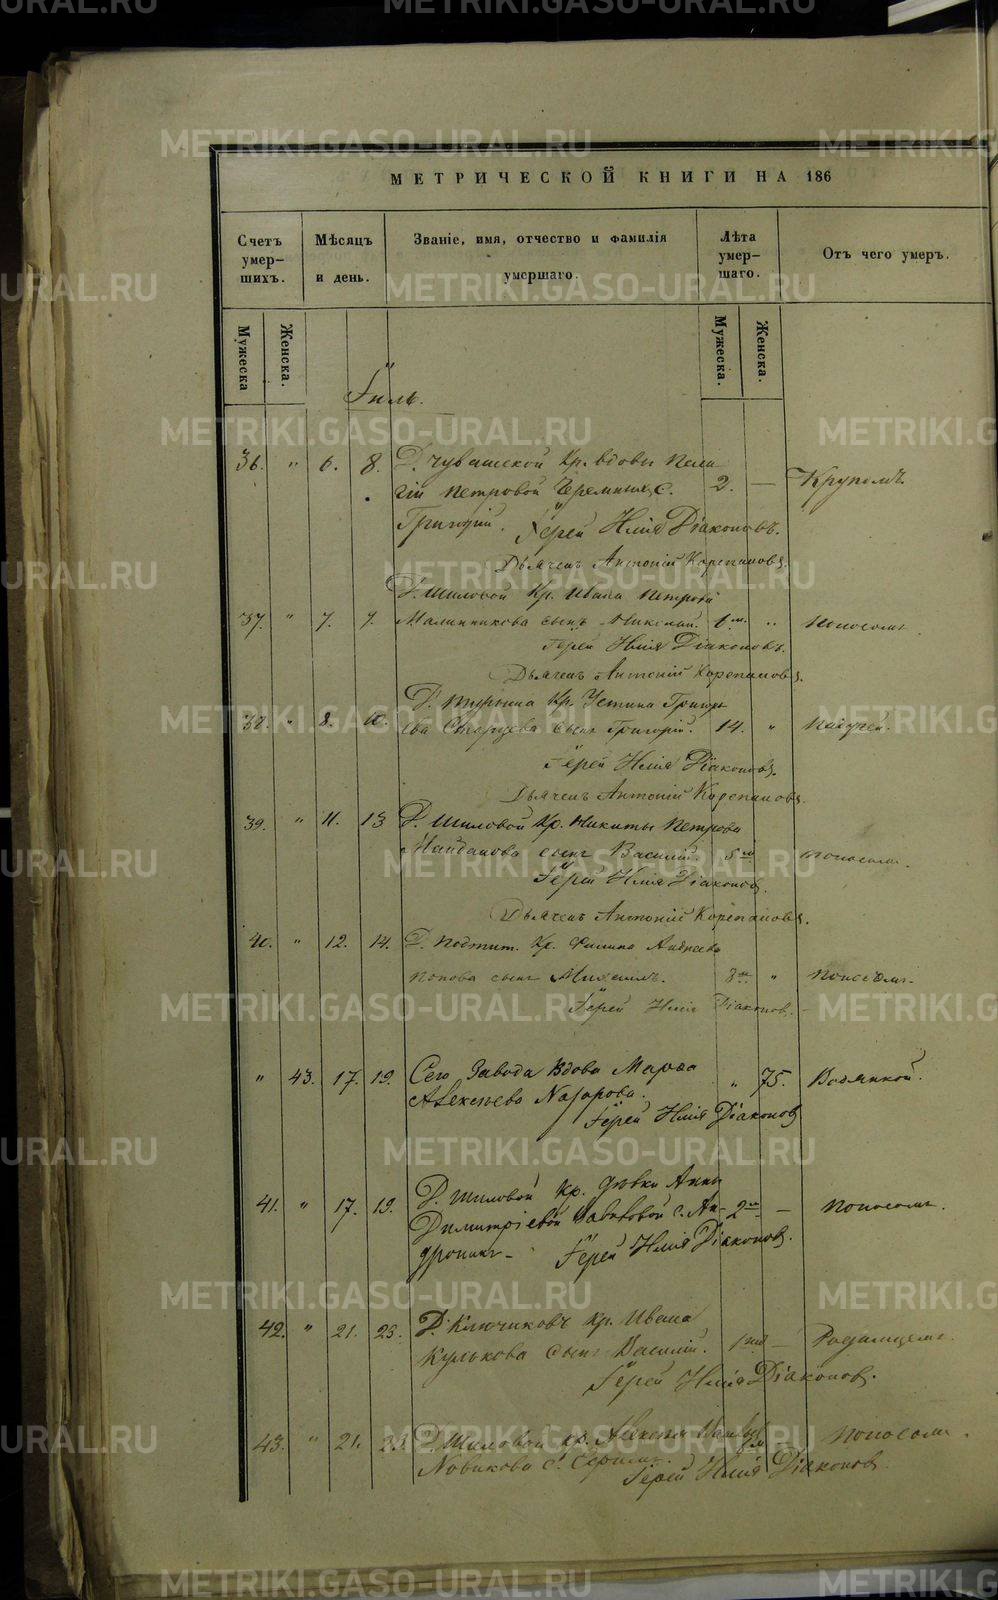 МЕТРИЧЕСКОЙ КНИГИ НА 186
Счетъ умер-шихъ.
Мѣсяцъ и день.
Званіе, имя, отчество и фамилія умершаго.
Лѣта умер-шаго.
Отъ чего умеръ.
Мужеска
Женска.
Мужеска.
Женска.
Іюль.
36. " 6. 8. Д. Чувашской Кр. вдовы Пела
гіи Петровой Черемныхъ с. 2. — Крупомъ
Григорій. Іерей Илія Діаконовъ.
Дьячекъ Антоній Корепановъ.
37. " 7. 9. Д. Шиловой Кр. Ивана Петрова
Малинникова сынъ Николай. 6 м. " Поносомъ
Іерей Илія Діаконовъ.
Дьячекъ Антоній Корепановъ.
38. " 8. 10. Д. Кр. Устина Григорь
ева Старцева сынъ Григорій. 14. "
Іерей Илія Діаконовъ.
Дьячекъ Антоній Корепановъ.
39. " 11. 13 Д. Шиловой Кр. Никиты Петрова
Майданова сынъ Василій. 5 м Поносомъ.
Іерей Илія Діаконовъ.
Дьячекъ Антоній Корепановъ.
40. " 12. 14. Д. Кр. Филипа Андреева
Попова сынъ Михаилъ. 3 м " Поносомъ.
Іерей Илія Діаконовъ.
" 43. 17. 19. Сего Завода Вдова Марѳа
Алексѣева Назарова. " 75. Водянкой.
Іерей Илія Діаконовъ
41. " 17. 19. Д. Шиловой Кр. дѣвки Анны
Димитріевой с. Ан- 2 м — Поносомъ
дроникъ — Іерей Илія Діаконовъ.
42. " 21. 23. Д. Ключиковъ Кр. Ивана
Кулькова сынъ Василій. — Родимцемъ.
Іерей Илія Діаконовъ.
43. " 21. 23. Д. Шиловой Кр. Алексѣя Поносомъ.
Новикова с.
Іерей Илія Діаконовъ
METRIKI.GASO-URAL.RU